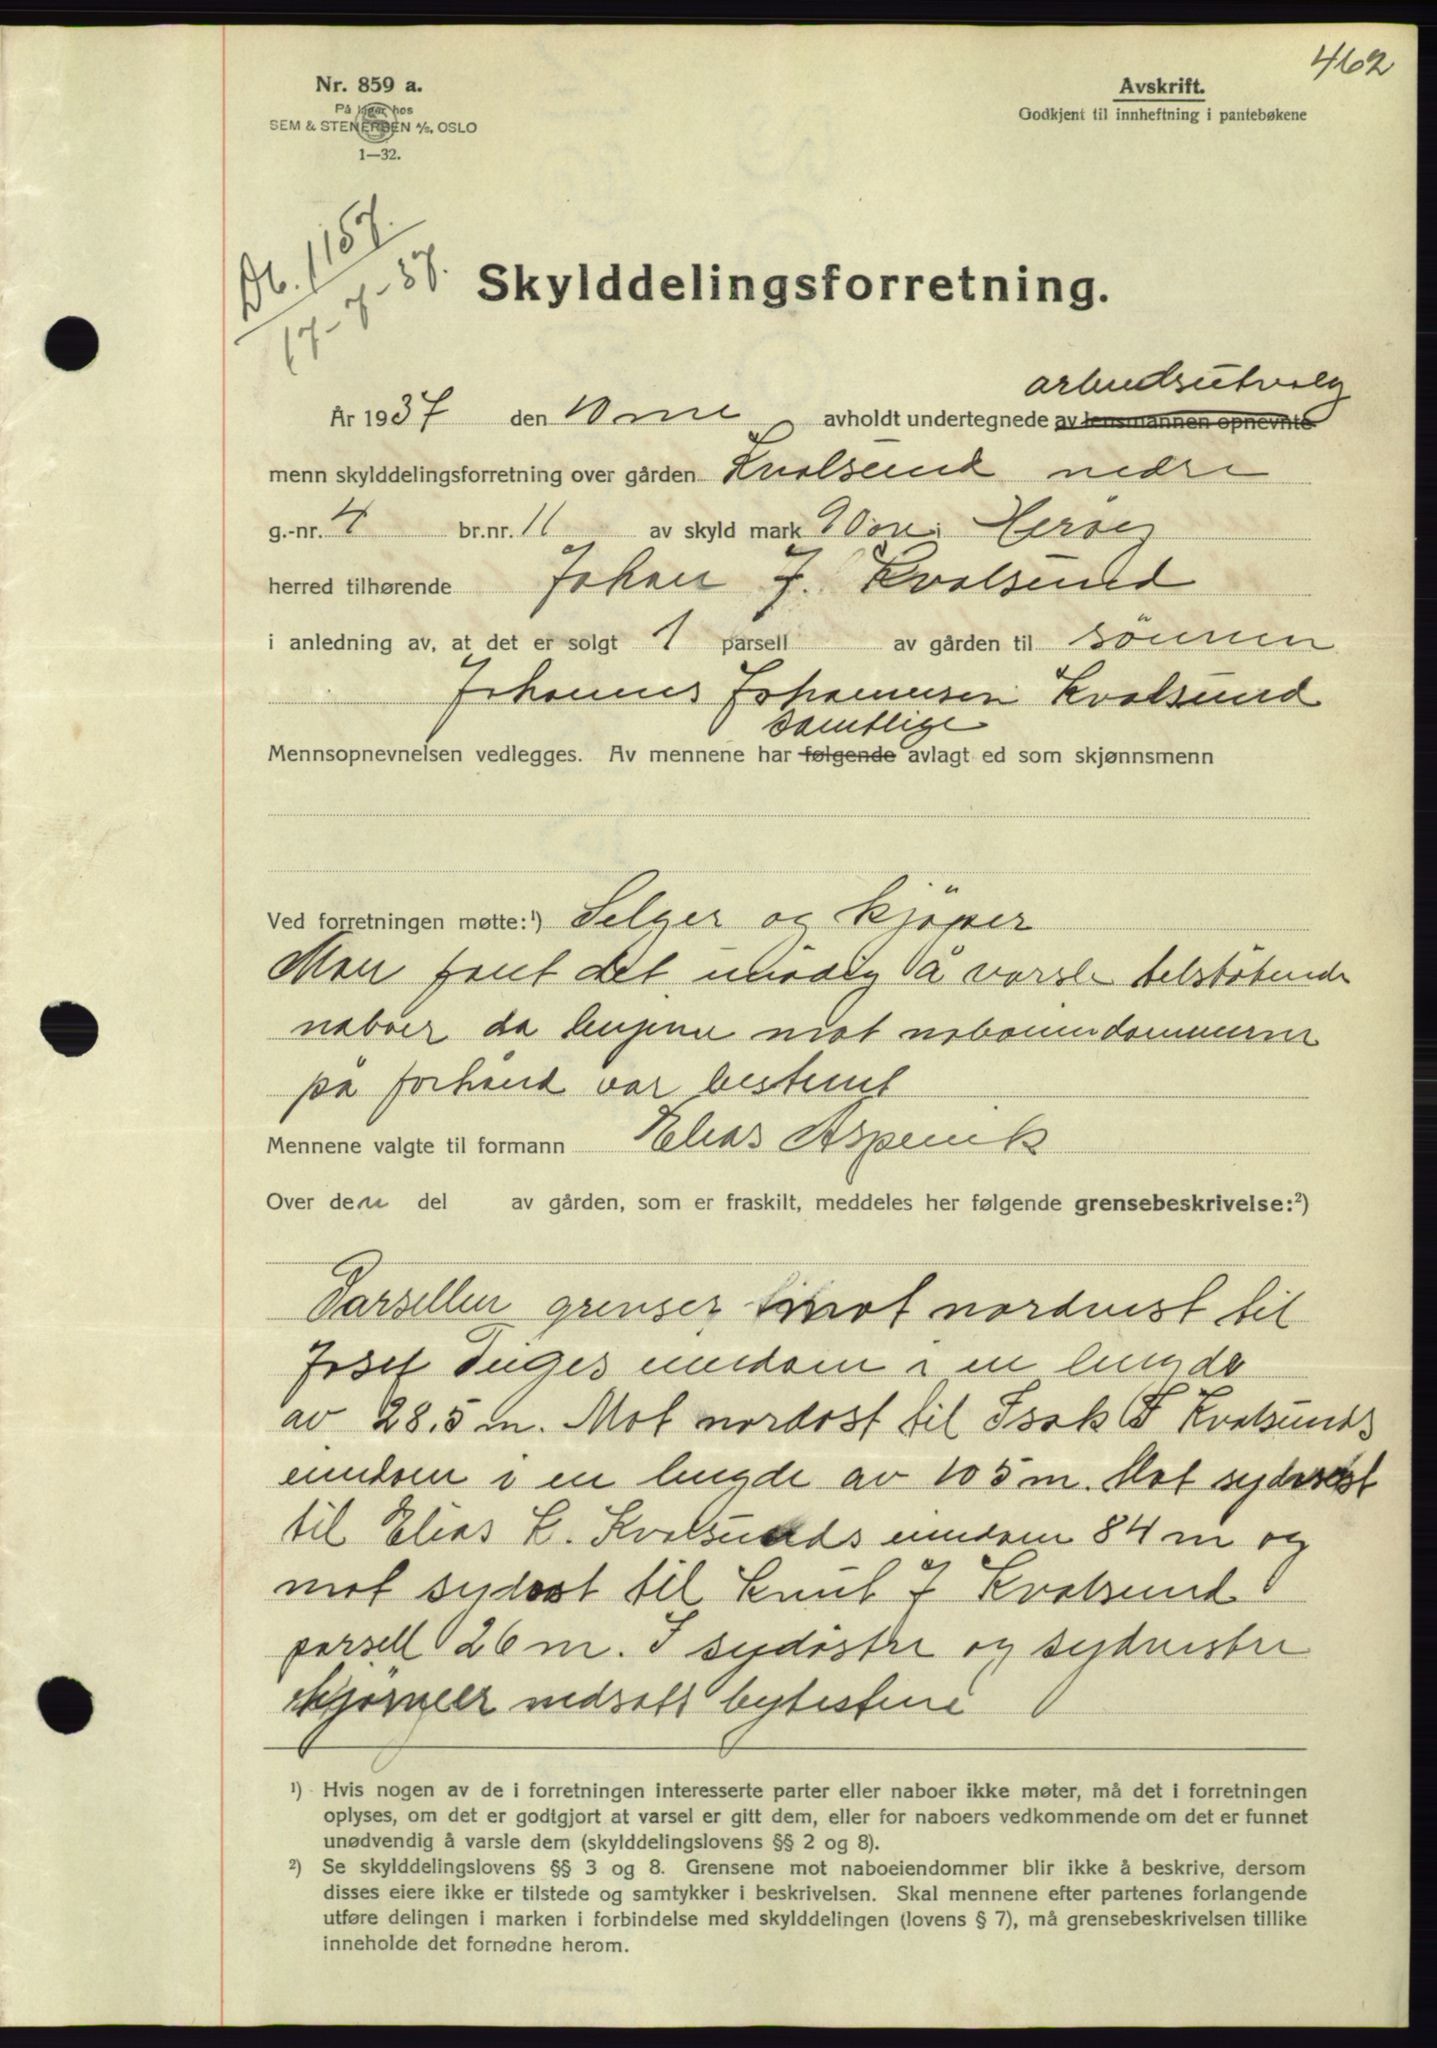 462
Nr. 859 a.
På lager hos
SEM & STENERSEN A/S, OSLO
1—32.
Avskrift.
Godkjent til innheftning i pantebøkene
Db. 1157.
17-7-37.
Skylddelingsforretning.
arbeidsutvalg
År 1937 den avholdt undertegnede av lensmannen opnevnte
menn skylddelingsforretning over gården Kvalsund nedre
g.-nr. 4 br.nr. 11 av skyld mark 90 øre i Herøy
herred tilhørende Johan J. Kvalsund
i anledning av, at det er solgt 1 parsell av gården til sønnen
Johannes Johannesen Kvalsund
samtlige
Mennsopnevnelsen vedlegges. Av mennene har følgende avlagt ed som skjønnsmenn
Ved forretningen møtte:¹) Selger og kjöper
Man fant det unödig å varsle tilstötende
naboer da linjene mot naboeiendommerne
på forhånd var bestemt
Mennene valgte til formann Elias Aspevik
Over den del av gården, som er fraskilt, meddeles her følgende grensebeskrivelse:²)
Parsellen grenser mot nordvest til
Josef eiendom i en lengde
av 28.5 m. Mot nordost til Isak J Kvalsunds
eiendom i en lengde av 105 m. Mot sydvest
til Elias K. Kvalsunds eiendom 84 m og
mot sydost til Knut J Kvalsund
parsell 26 m. I sydöstre og sydvestre
hjörneer nedsatt bytestene
¹) Hvis nogen av de i forretningen interesserte parter eller naboer ikke møter, må det i forretningen
oplyses, om det er godtgjort at varsel er gitt dem, eller for naboers vedkommende om det er funnet
unødvendig å varsle dem (skylddelingslovens §§ 2 og 8).
²) Se skylddelingslovens §§ 3 og 8. Grensene mot naboeiendommer blir ikke å beskrive, dersom
disses eiere ikke er tilstede og samtykker i beskrivelsen. Skal mennene efter partenes forlangende
utføre delingen i marken i forbindelse med skylddelingen (lovens § 7), må grensebeskrivelsen tillike
inneholde det fornødne herom.